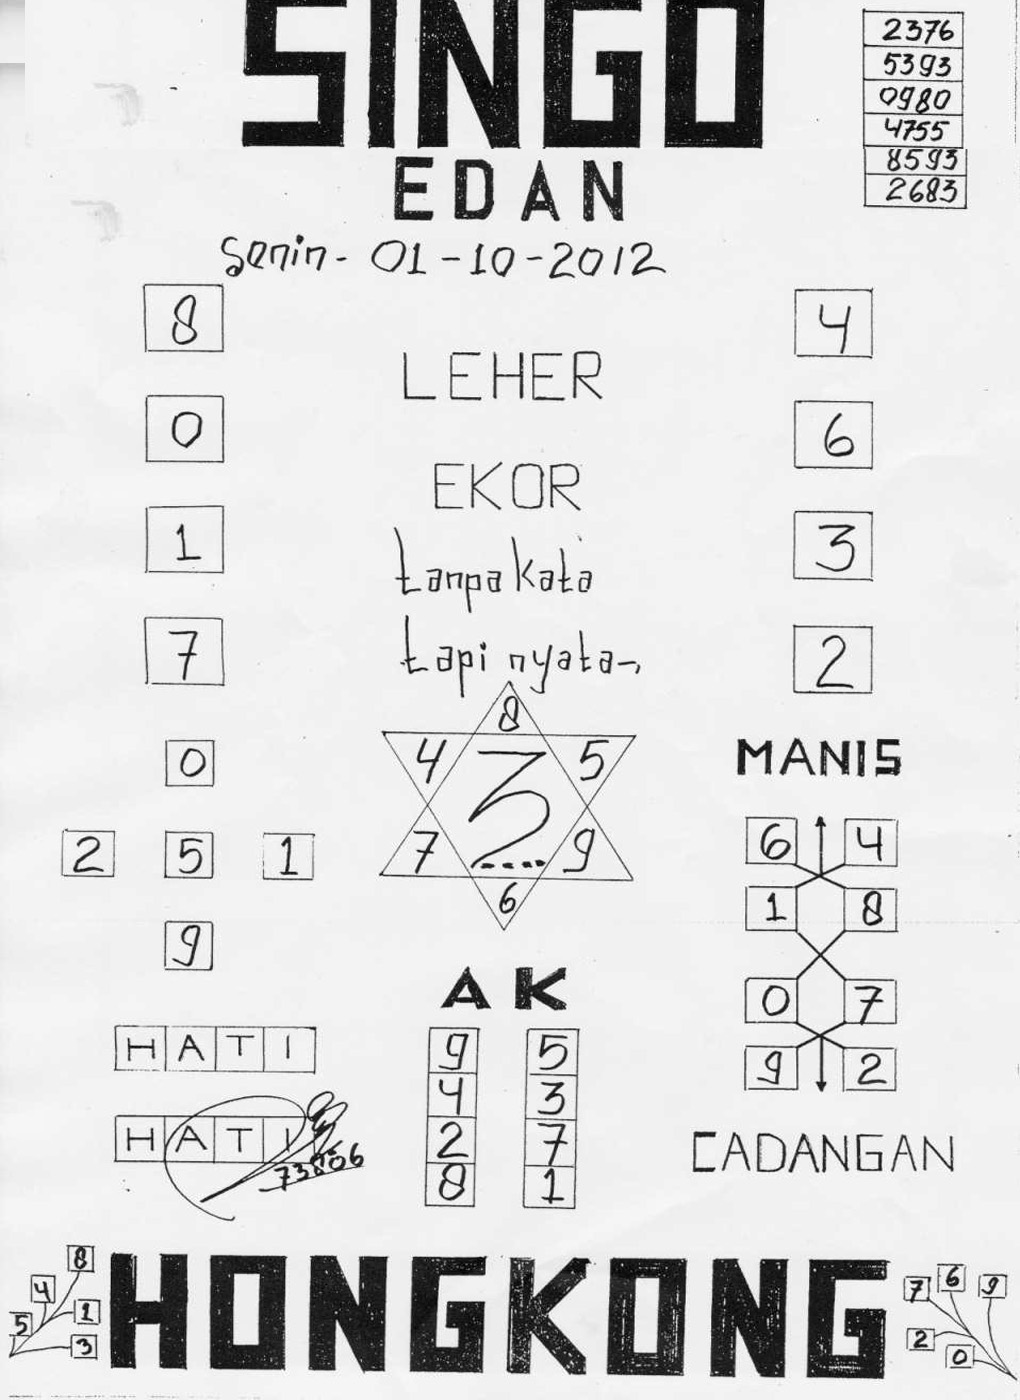 SINGO
2376
5393
0980
4755
8593
2683
EDAN
Senin - 01-10-2012
8
4
LEHER
0
6
EKOR
1
3
tanpa kata
7
2
tapi nyata-,
8
4 3 5
7 9
6
0
2 5 1
9
MANIS
6 4
1 8
0 7
9 2
AK
9 5
4 3
2 7
8 1
HATI
HATI
CADANGAN
8
4
5 1
3
HONGKONG
7 6 9
2
0